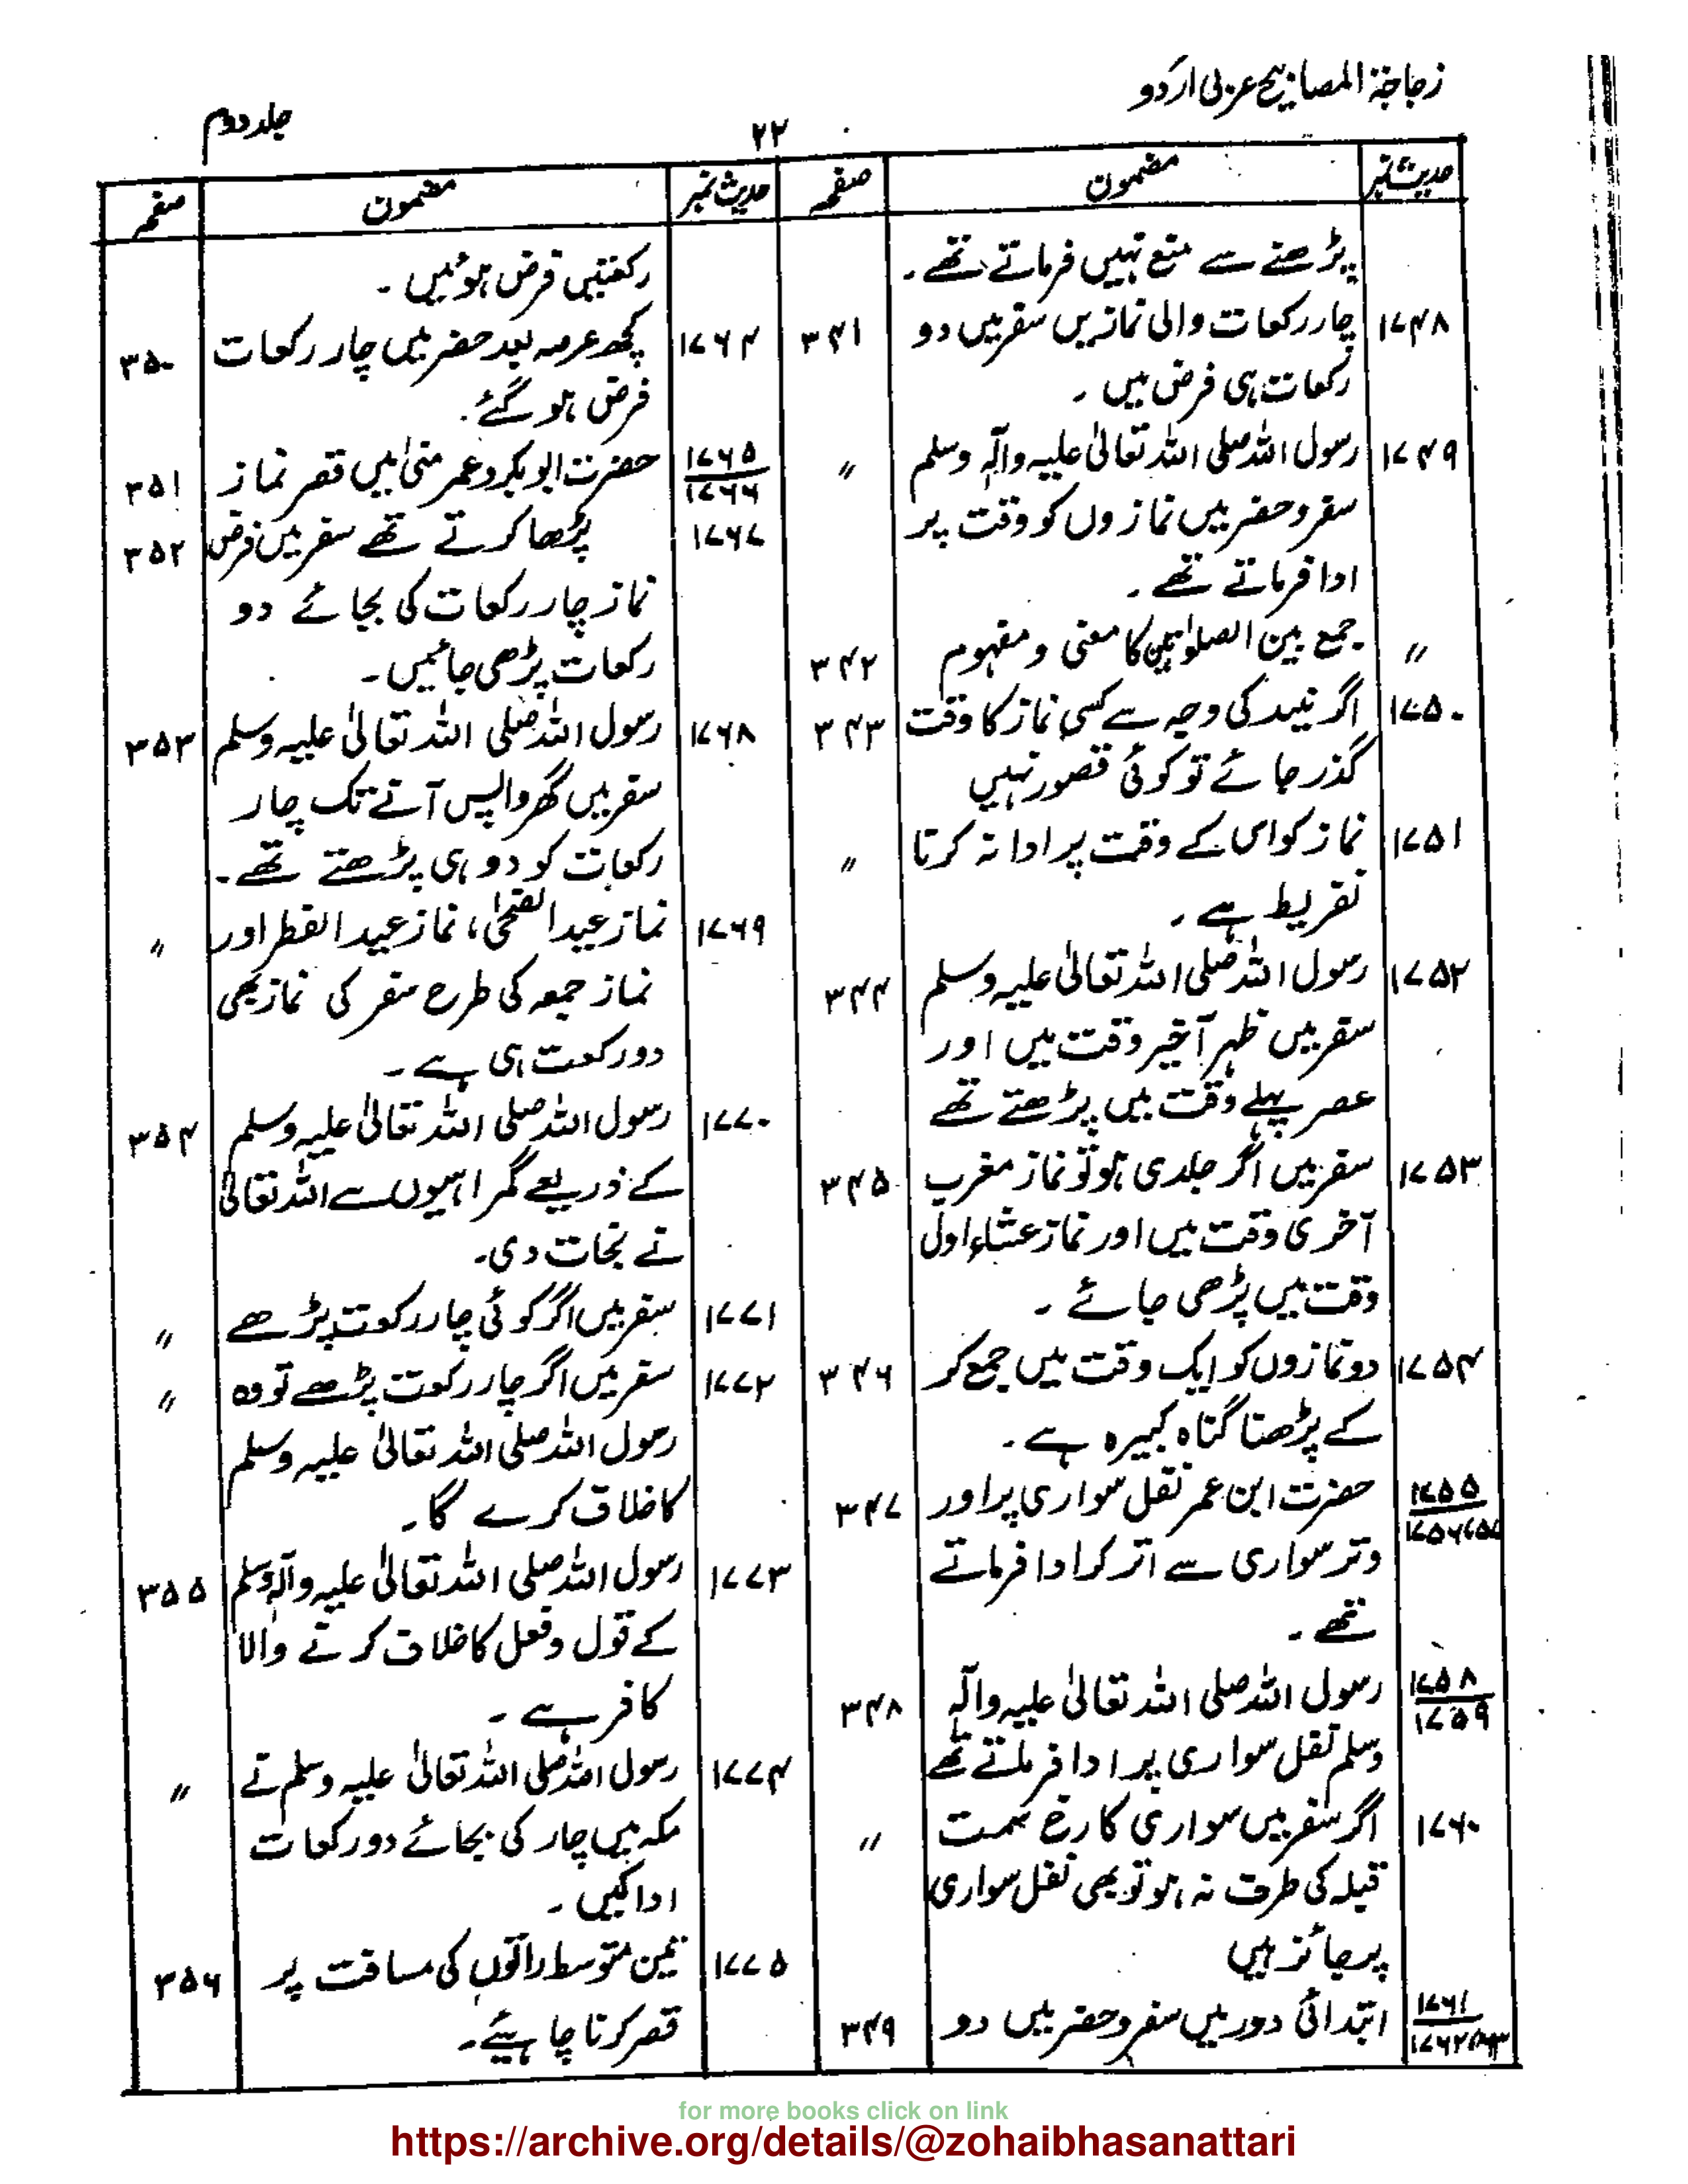 زجاجۃ المصابیح عربی اردو
۲۲
جلد دوم
حدیث نمبر مضمون صفحہ
پڑھنے سے منع نہیں فرماتے تھے۔
۱۷۴۸ چار رکعات والی نمازیں سفر میں دو ۳۴۱
رکعات ہی فرض ہیں۔
۱۷۴۹ رسول اللہ صلی اللہ تعالیٰ علیہ وآلہٖ وسلم 〃
سفر و حضر میں نمازوں کو وقت پر
ادا فرماتے تھے۔
〃 جمع بین الصلوٰتین کا معنی و مفہوم ۳۴۲
۱۷۵۰ اگر نیند کی وجہ سے کسی نماز کا وقت ۳۴۳
گذر جائے تو کوئی قصور نہیں
۱۷۵۱ نماز کو اس کے وقت پر ادا نہ کرنا 〃
تفریط ہے۔
۱۷۵۲ رسول اللہ صلی اللہ تعالیٰ علیہ وسلم ۳۴۴
سفر میں ظہر آخیر وقت میں اور
عصر پہلے وقت میں پڑھتے تھے
۱۷۵۳ سفر میں اگر جلدی ہو تو نماز مغرب ۳۴۵
آخری وقت میں اور نماز عشاء اول
وقت میں پڑھی جائے۔
۱۷۵۴ دو نمازوں کو ایک وقت میں جمع کر ۳۴۶
کے پڑھنا گناہ کبیرہ ہے۔
۱۷۵۵ حضرت ابن عمر نفل سواری پر اور ۳۴۷
۱۷۵۶،۵۷ وتر سواری سے اتر کر ادا فرماتے
تھے۔
۱۷۵۸ رسول اللہ صلی اللہ تعالیٰ علیہ وآلہٖ ۳۴۸
۱۷۵۹ وسلم نفل سواری پر ادا فرماتے تھے
۱۷۶۰ اگر سفر میں سواری کا رخ سمت 〃
قبلہ کی طرف نہ ہو تو بھی نفل سواری
پر جائز ہیں
۱۷۶۱ ابتدائی دور میں سفر و حضر میں دو ۳۴۹
۱۷۶۲،۶۳
حدیث نمبر مضمون صفحہ
رکعتیں فرض ہوئیں۔
۱۷۶۴ کچھ عرصہ بعد حضر میں چار رکعات ۳۵۰
فرض ہو گئے۔
۱۷۶۵ حضرت ابوبکر و عمر منیٰ میں قصر نماز ۳۵۱
۱۷۶۶
۱۷۶۷ پڑھا کرتے تھے سفر میں فرض ۳۵۲
نماز چار رکعات کی بجائے دو
رکعات پڑھی جائیں۔
۱۷۶۸ رسول اللہ صلی اللہ تعالیٰ علیہ وسلم ۳۵۳
سفر میں گھر واپس آنے تک چار
رکعات کو دو ہی پڑھتے تھے۔
۱۷۶۹ نماز عید الضحیٰ، نماز عید الفطر اور 〃
نماز جمعہ کی طرح سفر کی نماز بھی
دو رکعت ہی ہے۔
۱۷۷۰ رسول اللہ صلی اللہ تعالیٰ علیہ وسلم ۳۵۴
کے ذریعے گمراہیوں سے اللہ تعالیٰ
نے نجات دی۔
۱۷۷۱ سفر میں اگر کوئی چار رکعت پڑھے 〃
۱۷۷۲ سفر میں اگر چار رکعت پڑھے تو وہ 〃
رسول اللہ صلی اللہ تعالیٰ علیہ وسلم
کا خلاف کرے گا۔
۱۷۷۳ رسول اللہ صلی اللہ تعالیٰ علیہ وآلہٖ وسلم ۳۵۵
کے قول و فعل کا خلاف کرنے والا
کافر ہے۔
۱۷۷۴ رسول اللہ صلی اللہ تعالیٰ علیہ وسلم نے 〃
مکہ میں چار کی بجائے دو رکعات
ادا کیں۔
۱۷۷۵ تین متوسط راتوں کی مسافت پر ۳۵۶
قصر کرنا چاہیئے۔
for more books click on link
https://archive.org/details/@zohaibhasanattari